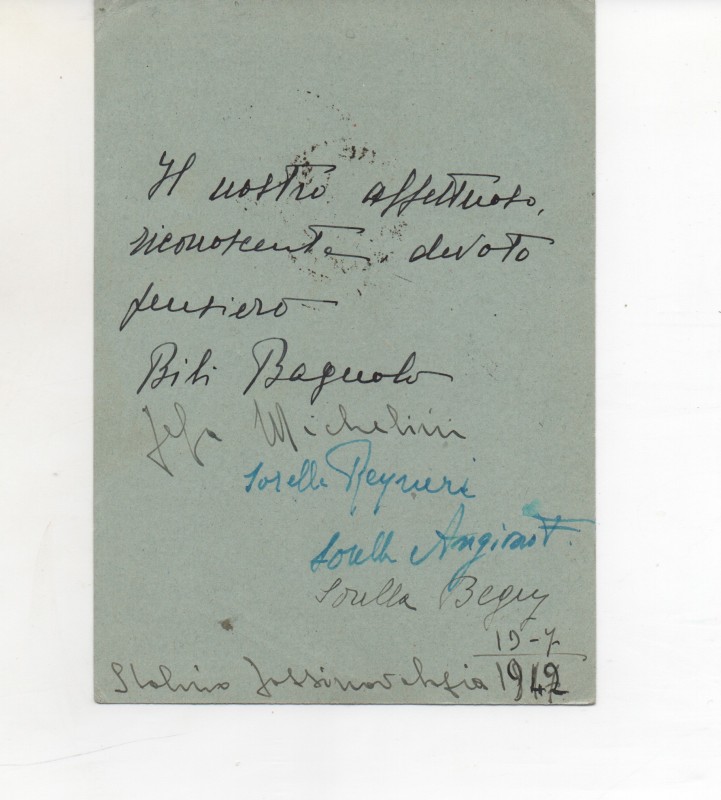 Il nostro affettuoso,
riconoscente, devoto
pensiero
Bili Bagnolo
Michelini
Sorella Reyneri
Sorella Angirot.
Sorella Begey
19-7
1942